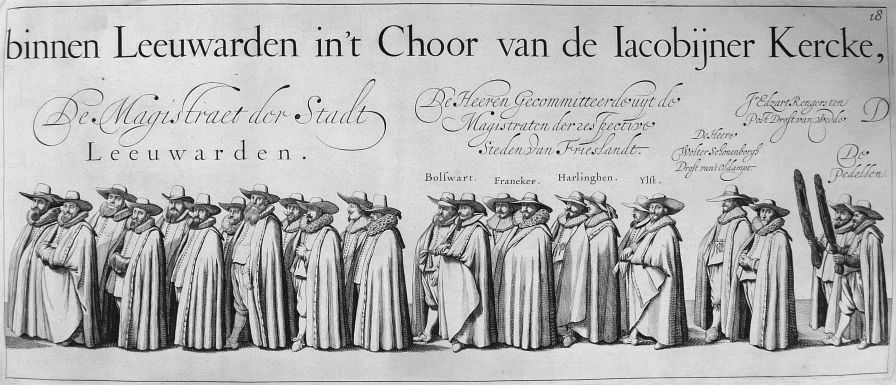 18
binnen Leeuwarden in't Choor van de Iacobijner Kercke,
De Magistraet der Stadt
Leeuwarden.
De Heeren Gecommitteerde uyt de
Magistraten der respective
Steden van Frieslandt.
Bolswart. Franeker. Harlinghen. Ylst.
De Heere
Wolter Schonenborgh
Drost van't Oldampt.
Jr Edzart Rengers ten
Post Drost van Wedde.
D
De
Pedellen